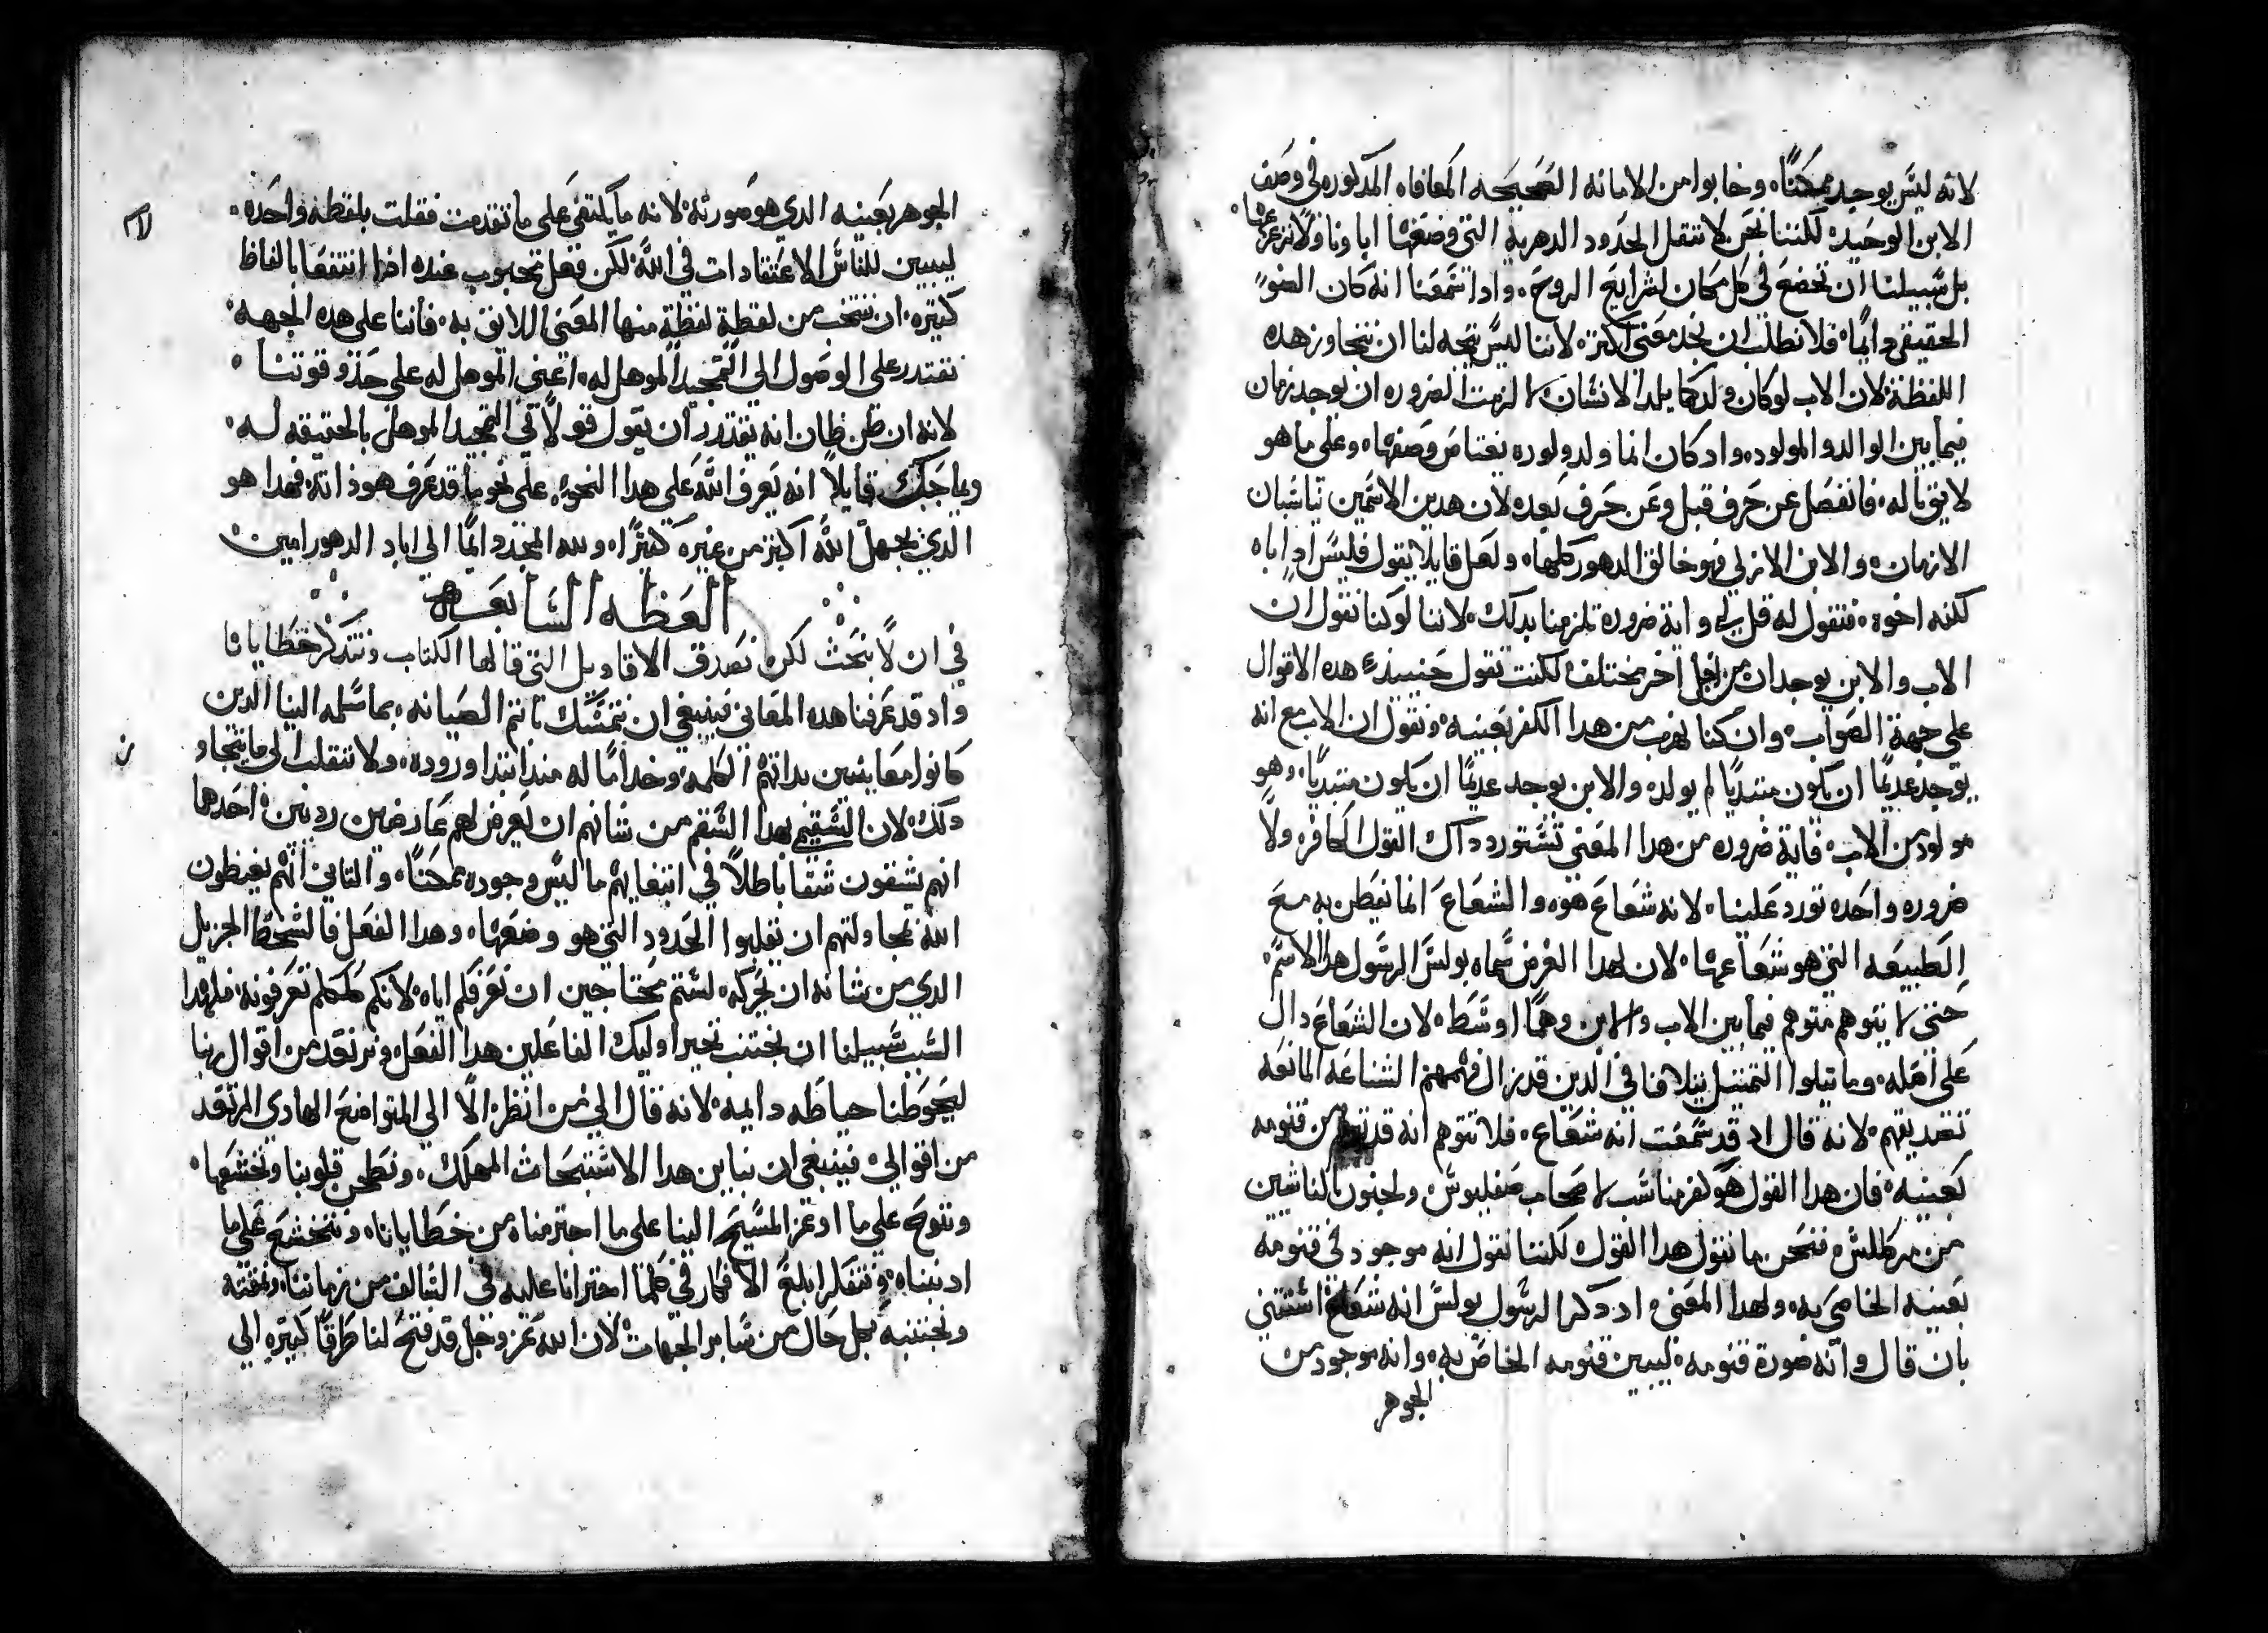 لانه ليس يوجد ممكنًا، وخابوا من الامانه الصحيحه المعافاه المذكوره في وصف
الابن الوحيد، لكننا نحن لا ننقل الحدود الدهرية التي وضعها اباونا ولا نزعزعها،
بل سبيلنا ان نخضع في كل مكان لشرايع الروح، واذا سمعنا انه كان الضو
الحقيقي دايمًا، فلا نطلب ان نجد معني اكتر، لاننا ليس يتجه لنا ان نتجاوز هذه
اللفظة، لان الاب لو كان ولد كما يلد الانسان لالزمت الضروره ان يوجد زمان
فيما بين الوالد والمولود، واد كان انما ولد ولوده يعتاص وصفها، وعلي ما هو
لايق باله، فانفصل عن حرف قبل وعن حرف بعد، لان هدين الاسمين يناسبان
الازمان، والابن الازلي فهو خالق الدهور كلها، ولعل قايلا يقول فليس اد اباه
لكنه اخوه، فنقول له قل لي واية ضروره تلزمنا بدلك، لاننا لو كنا نقول ان
الاب والابن يوجدان من اصل اخر مختلف لكنت تقول حينيد هده الاقوال
علي جهة الصواب، وان كنا نهرب من هدا الكفر بعينه، ونقول ان الاب مع انه
يوجد عديمًا ان يكون مبتديًا لم يولد، والابن يوجد عديمًا ان يكون مبتديًا، وهو
مولود من الاب، فاية ضروره من هدا المعني تستورد داك القول الكافر، ولا
ضروره واحده تورد علينا، لانه شعاع هو، والشعاع انما نفطن به مع
الطبيعه التي هو شعاعها، لان لهدا الغرض سماه بولس الرسول هدا الاسم،
حتي لا يتوهم متوهم فيما بين الاب والابن وهمًا اوسط، لان الشعاع دال
علي اصله، وما يتلوا التمثيل يتلافا في الدين قدر ال فهمهم الشناعه المانعه
تصديقهم، لانه قال اد قد سمعت انه شعاع، فلا تتوهم انه قد من قنومه
بعينه، فان هدا القول هو كفر مناسب لاصحاب صفليوس ولجنون الناشيين
من مركللس، فنحن ما نقول هدا القول، لكننا نقول انه موجود في قنومه
بعينه الخاصي به، ولهدا المعني اد دكر الرسول بولس انه شعاع استثني
بان قال وانه صورة قنومه، ليبين قنومه الخاص به، وانه موجود من
الجوهر
الجوهر بعينه الدي هو صورته، لانه ما يكتفي علي ما تقدمت فقلت بلفظه واحده،
ليبين للناس الاعتقادات في الله، لكن فعل محبوب عنده ادا انتفعنا بالفاظ
كتيره، ان ننتخب من لفظة لفظة منها المعني اللايق به، فاننا علي هده الجهه،
نقتدر علي الوصول الي التمجيد الموهل له، اعني الموهل له علي حدو قوتنا،
لانه ان ظن ظان انه يقتدر ان يقول قولًا في التمجيد الموهل بالحقيقه له،
ويماجك قايلًا انه يعرف الله علي هدا النحو، علي نحو ما قد عرف هو ذاته، فهدا هو
الدي يجهل الله اكتر من غيره كتيرًا، ولله المجد دايمًا الي اباد الدهور امين،
العظه السابعه
في ان لا نبحث لكن نصدق الاقاويل التي قالها الكتاب ونتدكر خطايانا
واد قد عرفنا هده المعاني فينبغي ان نتمسك باتم الصيانه، بما سلمه الينا الدين
كانوا معاينين بداتهم الكلمه، وخدامًا له مند ابتدا وروده، ولا ننقلب الي ما يتجاوز
دلك، لان السقيم بهدا السقم من شانهم ان يعرض لهم عارضين رديين، احدها
انهم يشقون شقا باطلًا في ابتغايهم ما ليس وجوده ممكنًا، والتاني انهم يغيظون
الله بمحاولتهم ان يقلبوا الحدود التي هو وضعها، وهدا الفعل فالسخط الجزيل
الدي من شانه ان يحركه، لستم محتاجين ان نعرفكم اياه، لانكم كلكم تعرفونه، فلهدا
السبب سبيلنا ان نجتنب تخير اوليك الفاعلين هدا الفعل، ونرتعد من اقوال ربنا
ليحوطنا حياطه دايمه، لانه قال الي من انظر الا الي المتواضع الهادي المرتعد
من اقوالي، فينبغي ان نباين هدا الاستبحاث المهلك، ونطحن قلوبنا ونخشعها،
وننوح علي ما اوعز المسيح الينا علي ما اجترمناه من خطايانا، ونتخشع علي ما
ادنبناه، ونتفكر ابلغ الافكار في كلما اجترانا عليه في السالف من زماننا،
ونجتنبه بكل حال من ساير الجهات، لان الله عز وجل قد فتح لنا طرقًا كتيره الي